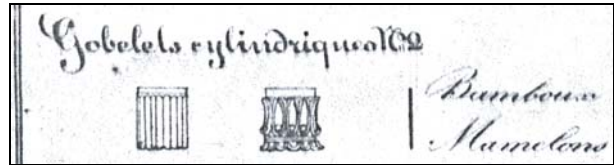 Gobelets cylindriques Nº 2
Bamboux
Mamelons